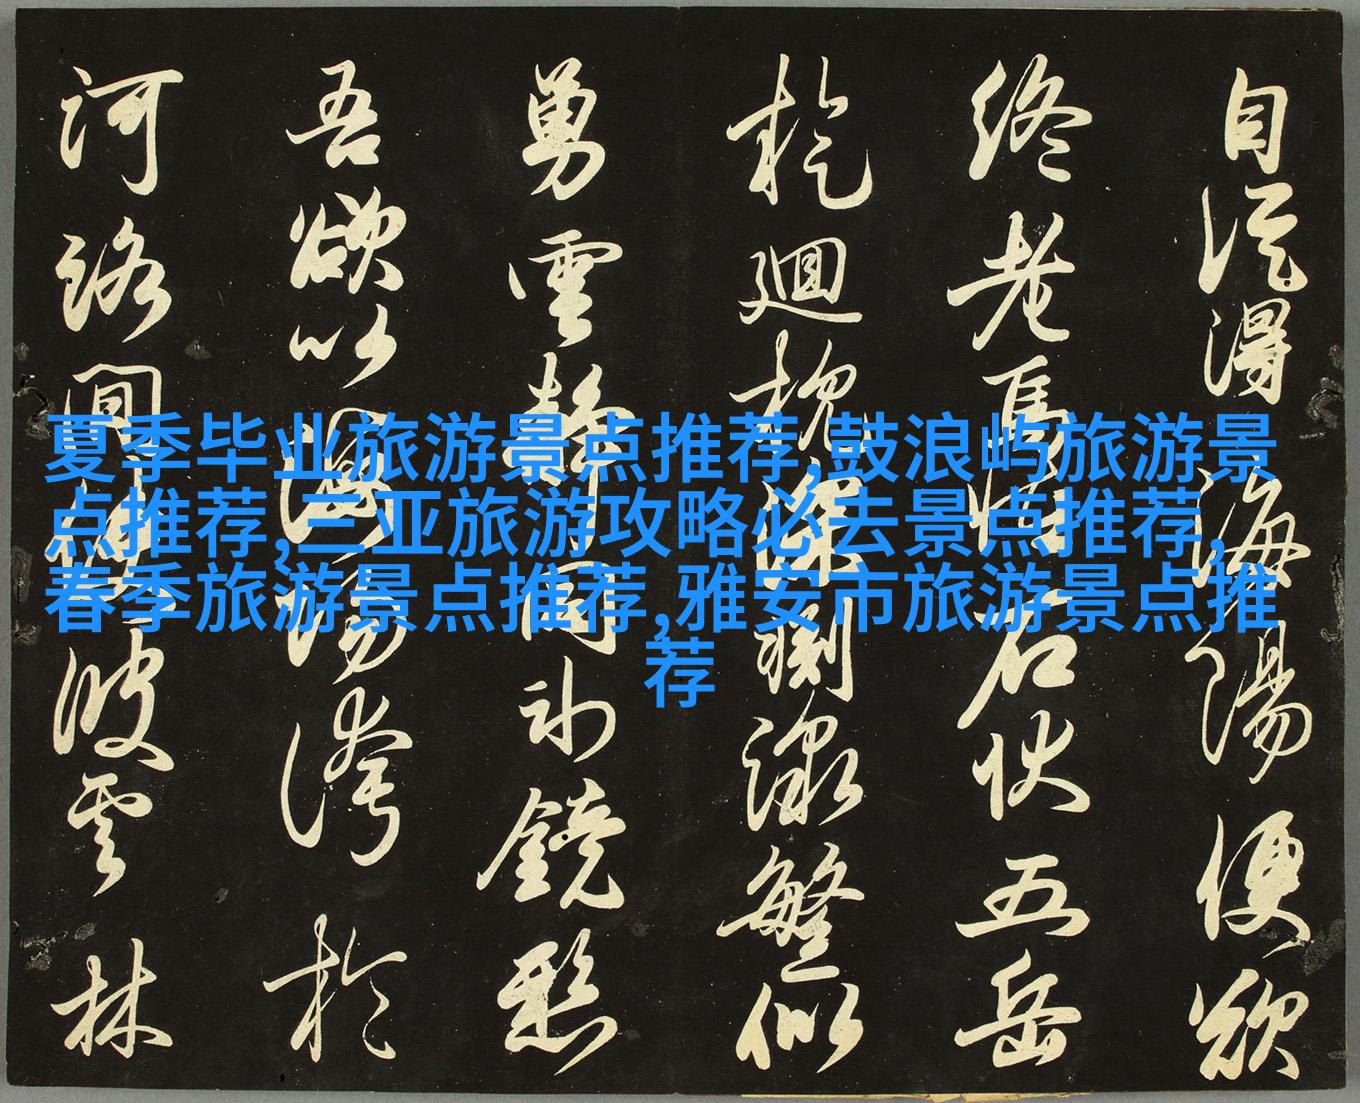 夏季毕业旅游景点推荐,鼓浪屿旅游景
点推荐,三亚旅游攻略必去景点推荐,
春季旅游景点推荐,雅安市旅游景点推
荐
自從得海陽便欲
终老焉石伏五岳
廻深測繁似
勇雲静同鏡愁
吾欲以於
河洛間波雲林